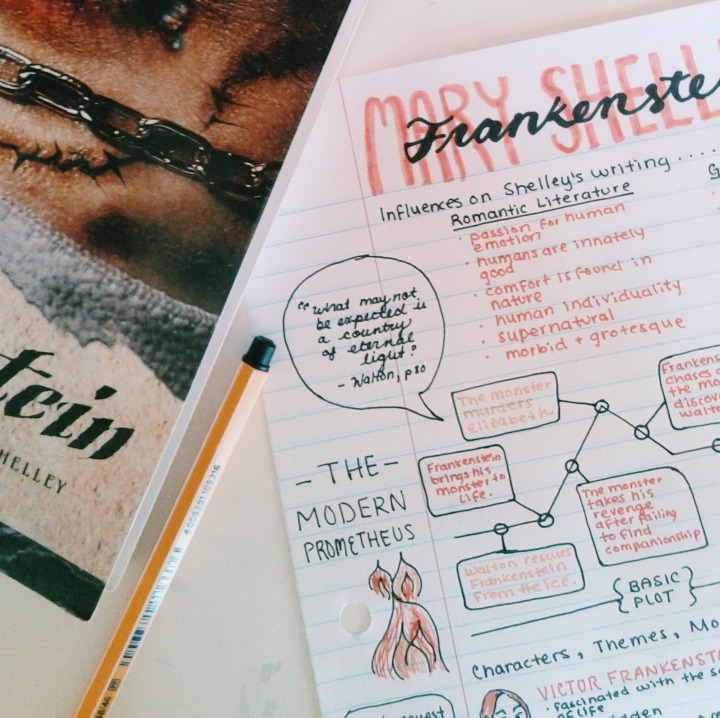 MARY SHELL
Frankenste
Influences on Shelley's writing .....
Romantic Literature
· passion for human
emotion
· humans are innately
good
· comfort is found in
nature
· human individuality
· supernatural
· morbid + grotesque
"what may not
be expected in
a country
of eternal
light?
- Walton, p10
The monster
murders
elizabeth.
Frankens
chases
the mo
discov
walt
Frankenstein
brings his
monster to
life.
The monster
takes his
revenge
after failing
to find
companionship
Walton rescues
Frankenstein
from the ice.
- THE -
MODERN
PROMETHEUS
{BASIC
PLOT}
Characters, Themes, Mo
VICTOR FRANKENST
· fascinated with the s
of life
tein
SHELLEY